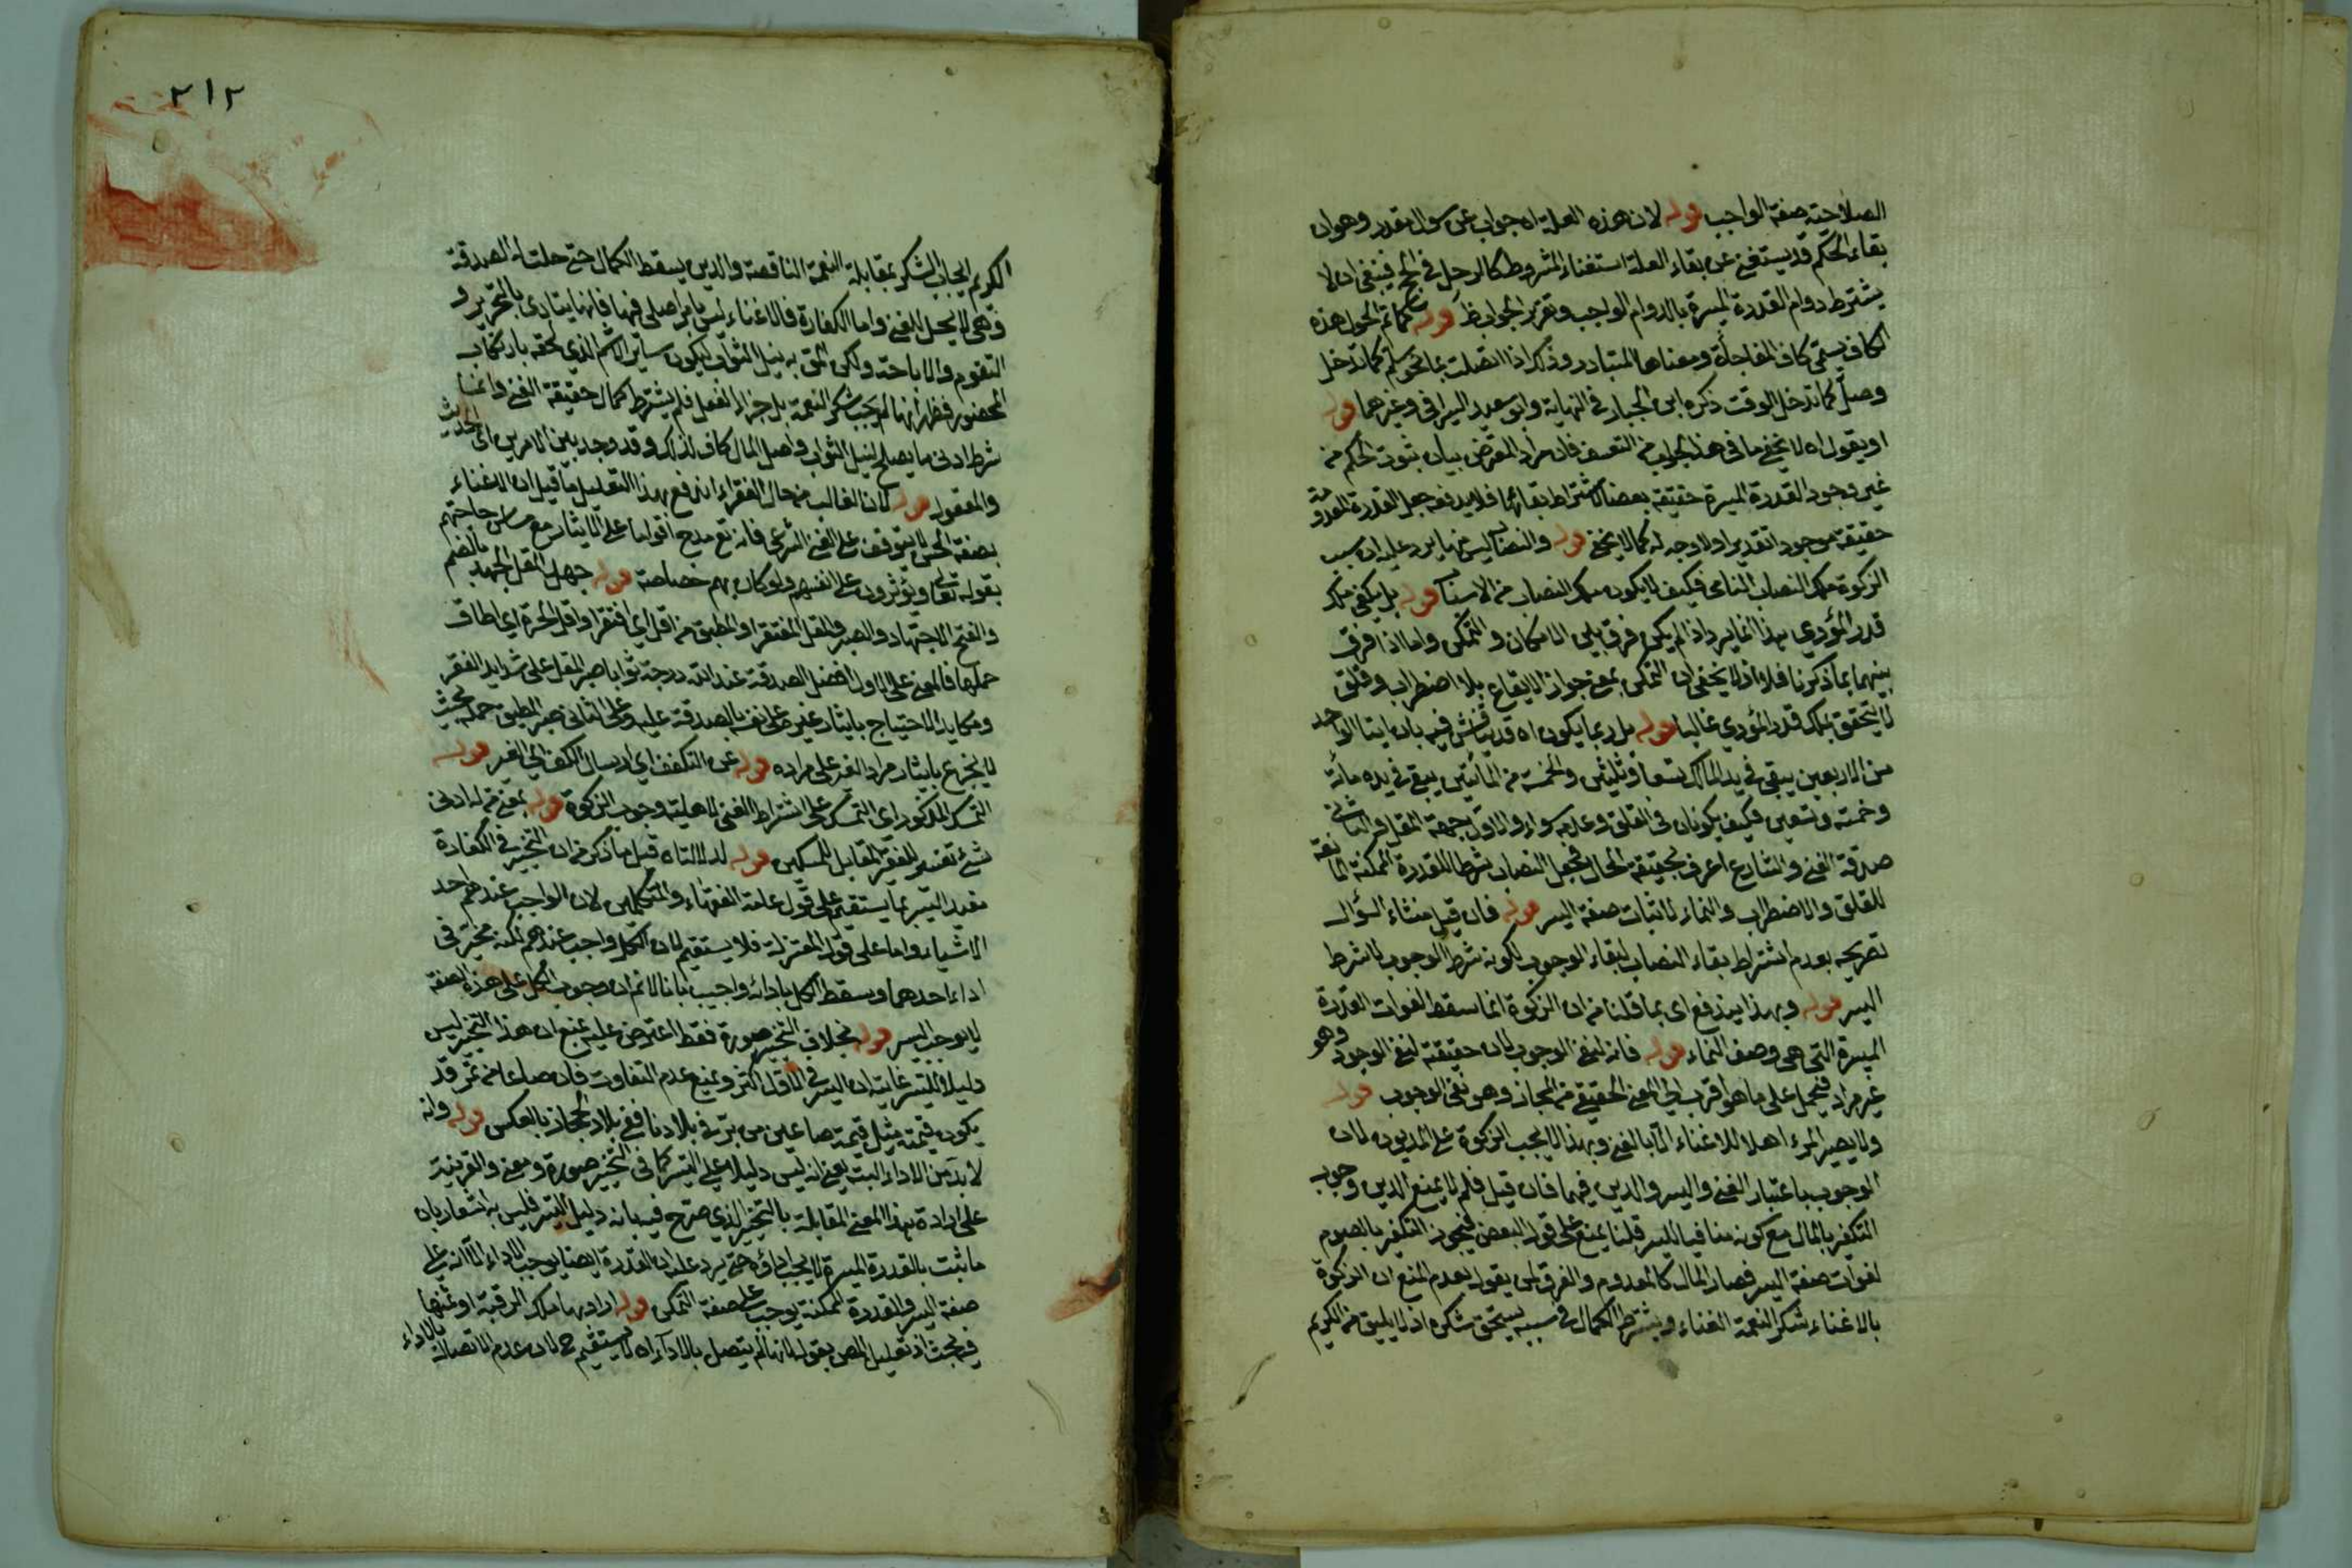 الصلاحته صفة الواجب قوله لان هذه العلة اه جواب عن سوال مقدر وهو ان
بقاء الحكم قد يستغنى عن بقاء العلة استغناء المشروط كالرمل في الحج فينبغي ان لا
يشترط دوام القدرة الميسرة بالدوام الواجب وتقرير الجواب ظ قوله كما تم الحول هذه
الكاف يسمى كاف المفاجأة ومعناها المتبادر وذلك اذا اتصلت بما نحو سلم كما تدخل
وصل كما تدخل الوقت ذكره ابن الخباز في النهاية وابو سعيد السيرافي وغيرهما قوله
او يقول اه لا يخفى ما في هذا الجواب من التعسف فان مراد المعترض بيان ثبوت الحكم من
غير وجود القدرة الميسرة حقيقة بعضا لاشتراط بقائها فلا يدفعه جعل القدرة المعدومة
حقيقة موجود تقديرا ولا وجه له كما لا يخفى قوله والنصاب ليس منها يرد عليه ان سبب
الزكوة ملك النصاب النامي فكيف لا يكون ملك النصاب من الاسباب قوله بل يكفي ملك
قدر المؤدي هذا انما يرد اذا لم يكن فرق بين الامكان والتمكن واما اذا فرق
بينهما بما ذكرنا فلا اذ لا يخفى ان التمكن بمعنى جواز الايقاع بلا اضطراب وقلق
لا يتحقق بملك قدر المؤدي غالبا قوله بل ربما يكون اه قد يناقش فيه بان ايتاء الواحد
من الاربعين يبقى في يد المالك تسعا وثلثين والخمسة من المأتين يبقى في يده مأة
وخمسة وتسعين فكيف يكونان في القلق وعدمه سواء والاول جهد المقل والثاني
صدقة الغني والشارع اعرف بحقيقة الحال فجعل النصاب شرطا للقدرة الممكنة المانعة
للقلق والاضطراب والنماء لاثبات صفة اليسر قوله فان قيل منشاء السؤال
تصريحه بعدم اشتراط بقاء النصاب لبقاء الوجوب لكونه شرط الوجوب لا شرط
اليسر قوله وبهذا يندفع اى بما قلنا من ان الزكوة انما سقط لفوات القدرة
الميسرة التي هي وصف النماء قوله فانه لنفي الوجوب لان حقيقة لنفي الوجود وهو
غير مراد فيحمل على ما هو اقرب الى المعنى الحقيقي من المجاز وهو نفى الوجوب قوله
ولا يصير المرء اهلا للاغناء الا بالغنى وبهذا لا يجب الزكوة على المديون لان
الوجوب باعتبار الغنى واليسر والدين فيهما فان قيل فلم لا يمنع الدين وجوب
التكفير بالمال مع كونه منافيا لليسر قلنا يمنع على قول البعض فيجوز التكفير بالصوم
لفوات صفة اليسر فصار المال كالمعدوم والفرق لمن يقول بعدم المنع ان الزكوة
بالاغناء شكر النعمة الغناء ويشترط الكمال في سببه يستحق شكره اذ لا يليق من الكريم
٢١٢
الكريم ايجاب الشكر بمقابلة النعمة الناقصة والدين يسقط الكمال حتى حلت له الصدقة
وهي لا يحل للغني واما الكفارة فالاغناء ليس بامر اصلي فيها فانها يتادى بالتحرير و
التقوم والاباحة ولكن المق به نيل الثواب ليكون ساترا لاثم الذي لحقه بارتكاب
المحضور فظهر انها لم يجب شكر النعمة بل جزاء الفعل فلم يشترط كمال حقيقة الغنى وانما
شرط ادنى ما يصلح لنيل الثواب واصل المال كاف لذلك وقد وجد بين الامرين اى الحديث
والمعقول قوله لان الغالب من حال الفقراء اندفع بهذا التعليل ما قيل ان الاغناء
بصفة الحسن لا يتوقف على الغنى الشرعى فانه تع مدح اقواما على الايثار مع مساس حاجتهم
بقوله تعالى ويؤثرون على انفسهم ولو كان بهم خصاصة قوله جهد المقل الجهد بالضم
والفتح الاجتهاد والصبر والمقل المفتقر او المطيق من اقل اي افتقر او اقل الجرة اي اطاق
حملها فالمعنى على الاول افضل الصدقة عند الله درجة ثوابا صبر المقل على شدايد الفقر
ومكايد الاحتياج بايثار غيره على نفسه بالصدقة عليه وعلى الثاني صبر المطيق حمله بحيث
لا يجزع بايثار مراد الغير على مراده قوله عن التكفف اي ارسال الكف الى الغير قوله
التمسك المذكور اى التمسك على اشتراط الغنى لاهلية وجوب الزكوة قوله بمعنى من له ادنى
شئ تفسير للفقير المقابل للمسكين قوله لدلالتا اه قيل ما ذكر من ان التخيير في الكفارة
مفيد اليسر بما يستقيم على قول عامة الفقهاء والمتكلمين لان الواجب عندهم احد
الاشياء واما على قول المعتزلة فلا يستقيم لان الكل واجب عندهم لكنه مخير في
اداء احدهما ويسقط الكل بادائه واجيب بانا لا نم ان وجوب الكل على هذه الصفة
لا يوجب اليسر قوله بخلاف التخيير صورة فقط اعترض عليه بمنع ان هذا التخيير ليس
دليلا للتيسير غايته ان اليسر في الاول اكثر ويمنع عدم التفاوت فان صاعا من تمر قد
يكون قيمته مثل قيمة صاعين من بر في بلادنا ففي بلاد الحجاز بالعكس قوله وانه
لا بد من الاداء البتة يعنى انه ليس دليلا على اليسر كما في التخيير صورة ومعنى والقرينة
على ارادة بهذا المعنى المقابلة بالتخيير الذي صرح فيه بانه دليل التيسير فليس به اشعار بان
ما ثبت بالقدرة الميسرة لا يجب اداؤه حتى يرد عليه ان القدرة ايضا يوجب الاداء الا انه على
صفة اليسر والقدرة الممكنة يوجب على صفة التمكن قوله اراد بها ملك الرقبة او ثمنها
فيه بحث اذ تعليل المص بقوله لانها لم يتصل بالاداء اه لا يستقيم ح لان عدم الاتصال بالاداء